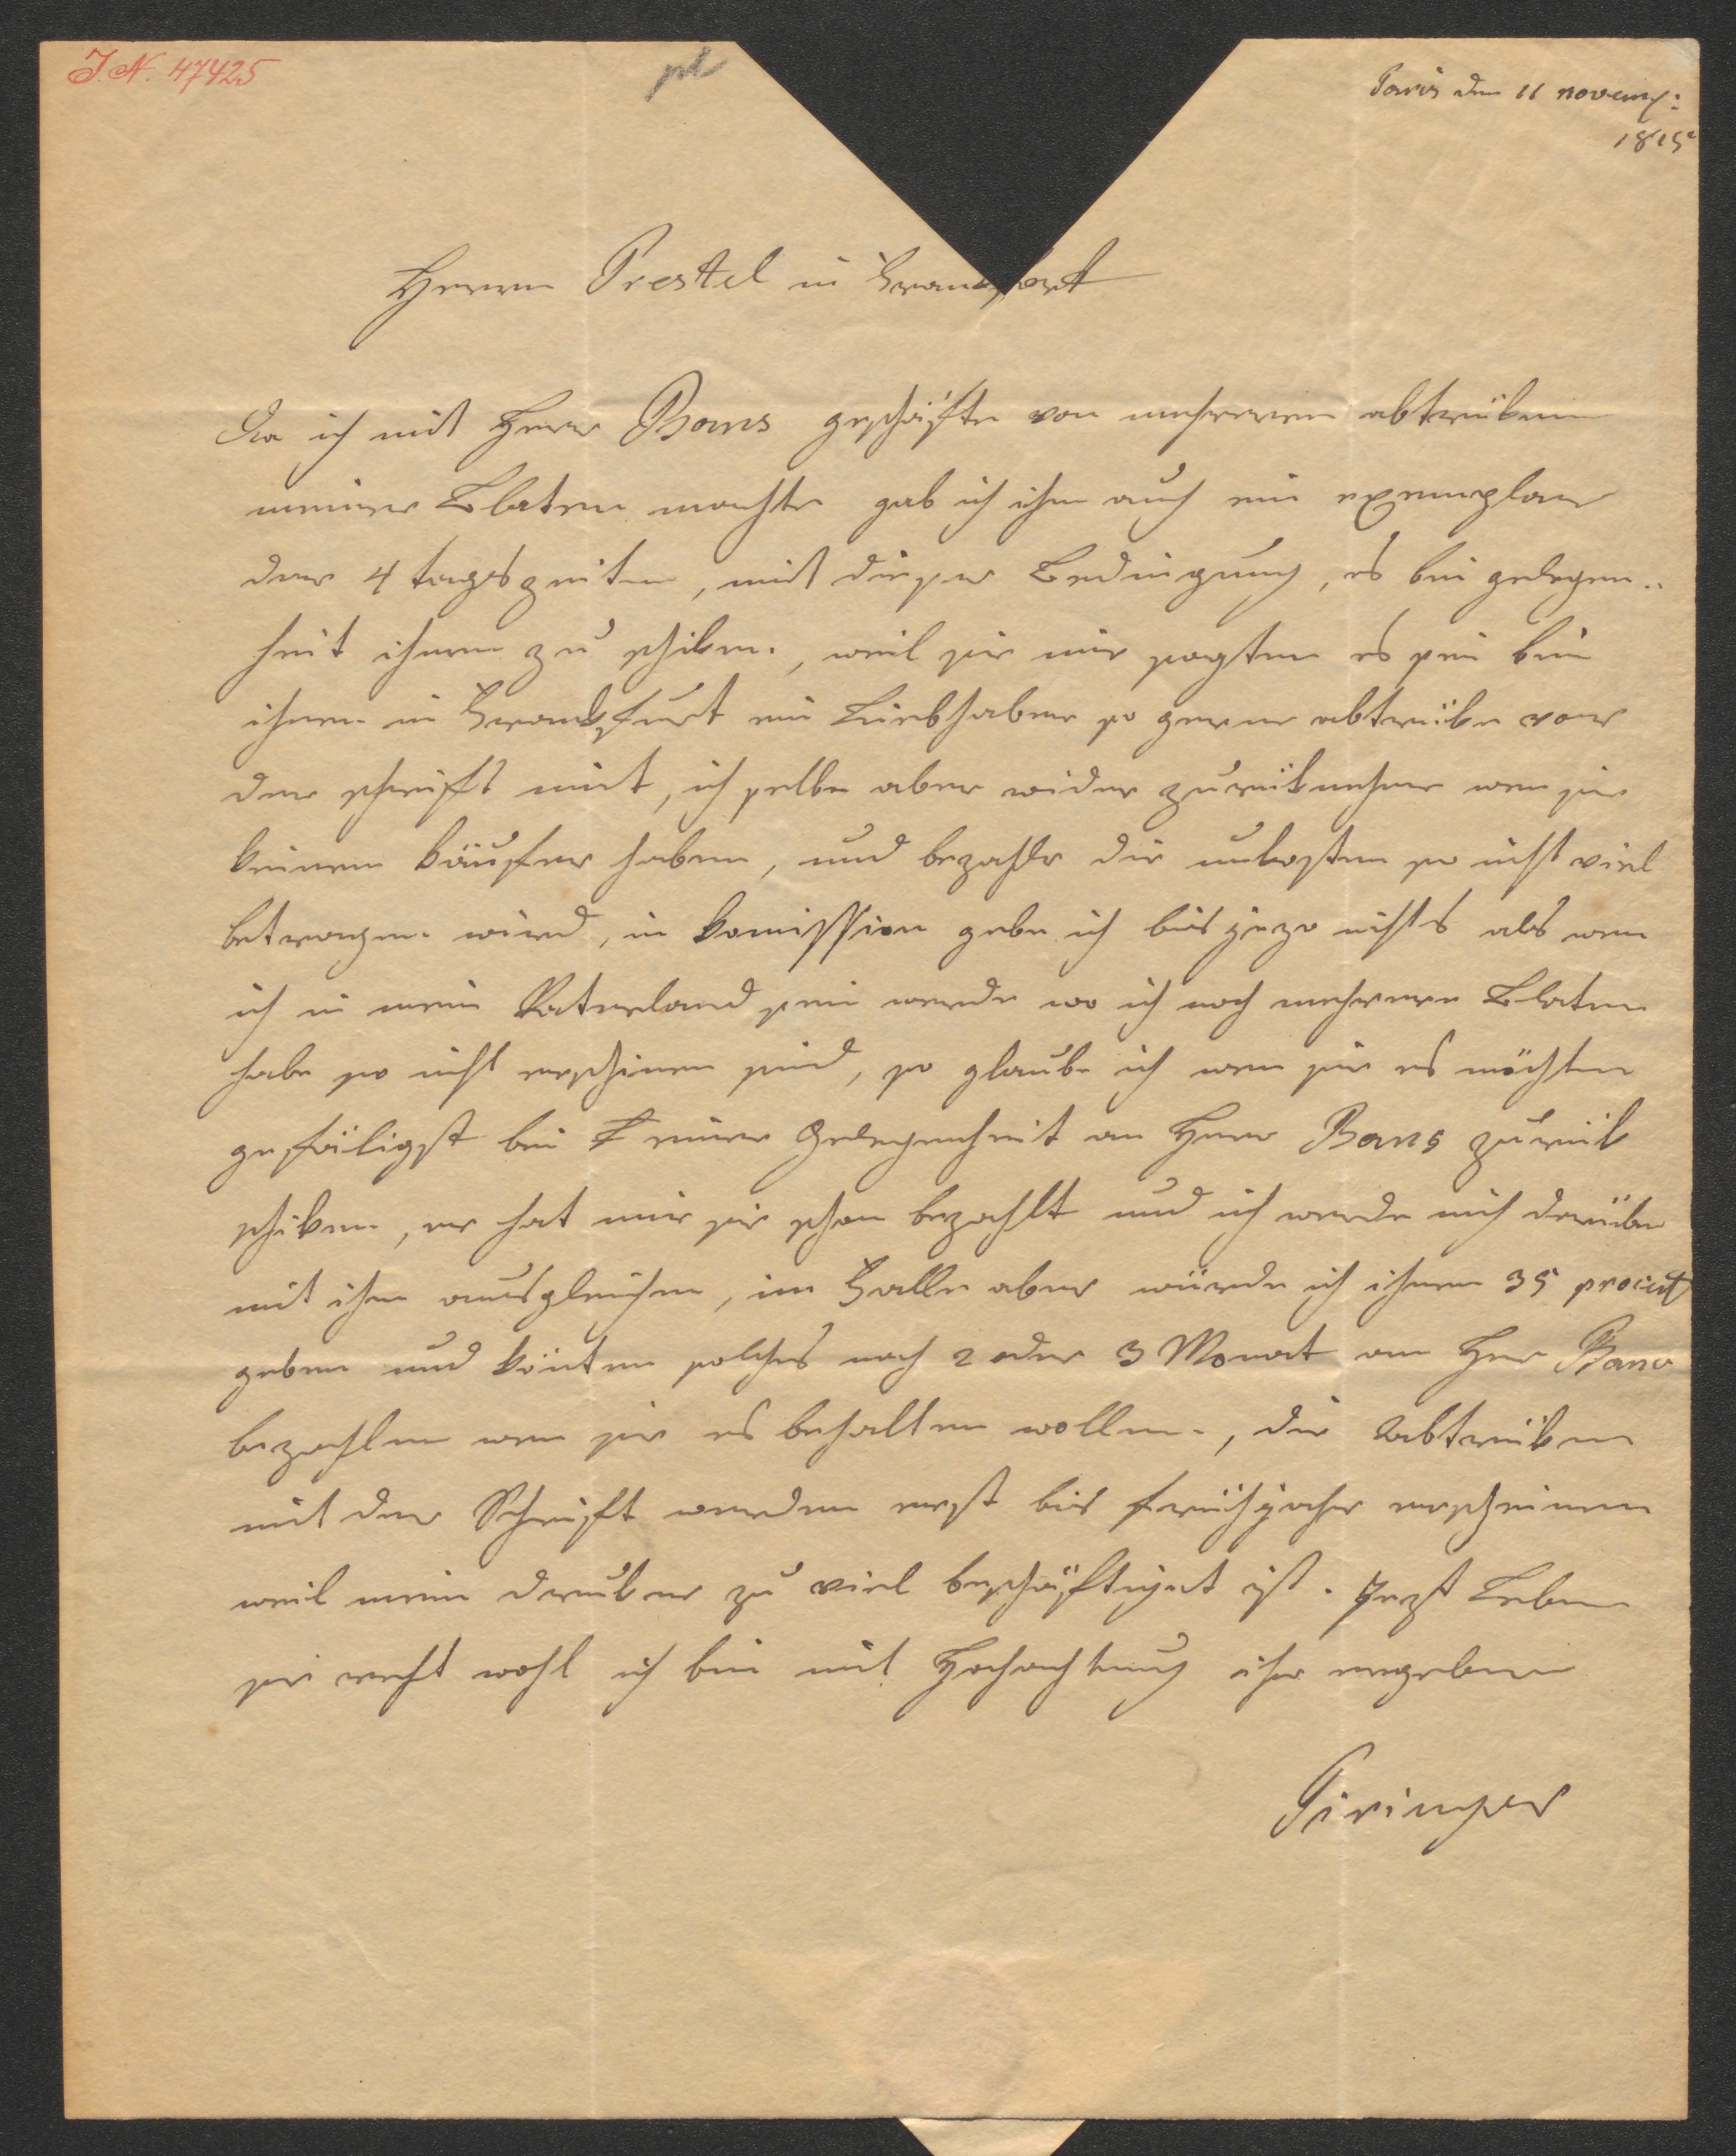 J.N. 47425
Paris den 11 novemb:
1815
Herrn Prestel in Frankfort
Da ich mit Herr Bans geschäfte von mehreren abtrüken
meiner Blaten machte gab ich ihm auch ein exemplar
der 4 tagszeiten, mit dieser Bedingung, es bei gelegen..
heit ihnen zu schiken, weil sie mir sagten es sei bei
ihnen in Frankfurt ein Liebhaber so gerne abtrüke vor
der schrift nimt, ich selbe aber wider zurüknehme wen sie
keinen käufer haben, und bezahle die unkosten so nicht viel
betragen wird, in komission gebe ich bis jezo nichts als wen
ich in mein Vaterland sein werde wo ich noch mehrere Blaten
habe so nicht erschinen sind, so glaube ich wen sie es möchten
gefäligst bei einer Gelegenheit an Herr Bans zurük
schiken, er hat mir sie schon bezahlt und ich werde mich darüber
mit ihm ausgleichen, im Falle aber würde ich ihnen 35 procent
geben und könten solches nach 2 oder 3 Monat an Herr Bans
bezahlen wen sie es behalten wollen, die Abtrüken
mit der Schrift werden erst bis frühjahr erscheinen
weil mein druker zu viel beschäftiget ist. Jezt Leben
sie recht wohl ich bin mit Hochachtung ihr ergebener
Piringer